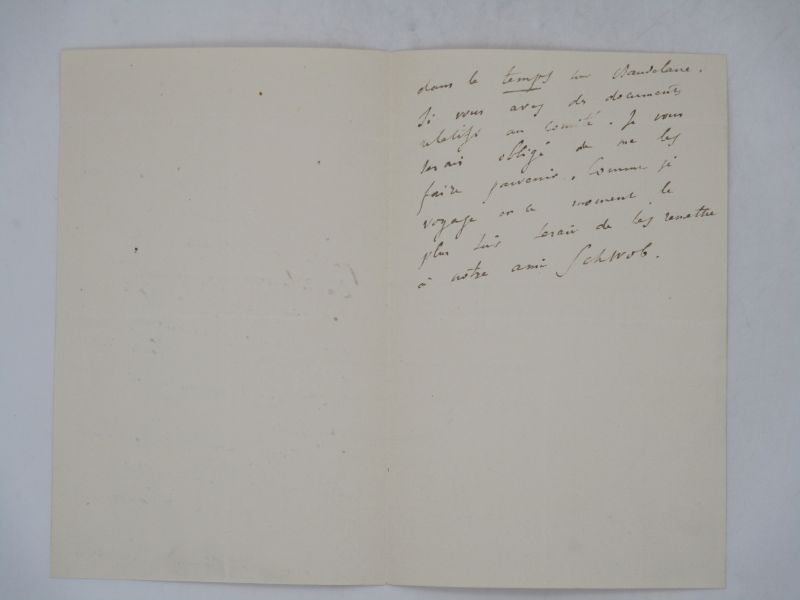 dans le temps sur Baudelaire.
Si vous avez des documents
relatifs au Comité. Je vous
serais obligé de me les
faire parvenir. Comme je
voyage en ce moment le
plus sûr serait de les remettre
à notre ami Schwob.